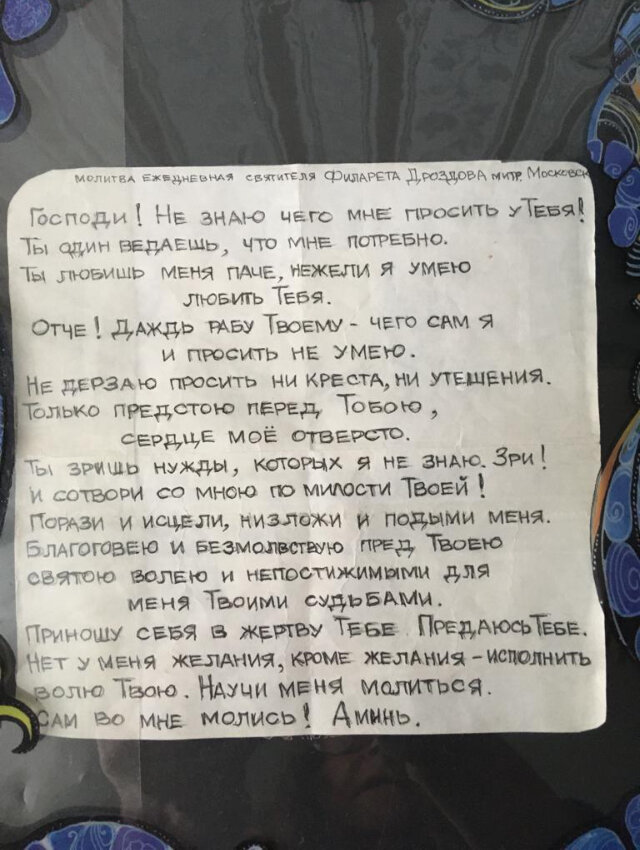 МОЛИТВА ЕЖЕДНЕВНАЯ СВЯТИТЕЛЯ ФИЛАРЕТА ДРОЗДОВА МИТР. МОСКОВСК
ГОСПОДИ! НЕ ЗНАЮ ЧЕГО МНЕ ПРОСИТЬ У ТЕБЯ!
ТЫ ОДИН ВЕДАЕШЬ, ЧТО МНЕ ПОТРЕБНО.
ТЫ ЛЮБИШЬ МЕНЯ ПАЧЕ, НЕЖЕЛИ Я УМЕЮ
ЛЮБИТЬ ТЕБЯ.
ОТЧЕ! ДАЖДЬ РАБУ ТВОЕМУ - ЧЕГО САМ Я
И ПРОСИТЬ НЕ УМЕЮ.
НЕ ДЕРЗАЮ ПРОСИТЬ НИ КРЕСТА, НИ УТЕШЕНИЯ.
ТОЛЬКО ПРЕДСТОЮ ПЕРЕД ТОБОЮ,
СЕРДЦЕ МОЁ ОТВЕРСТО.
ТЫ ЗРИШЬ НУЖДЫ, КОТОРЫХ Я НЕ ЗНАЮ. ЗРИ!
И СОТВОРИ СО МНОЮ ПО МИЛОСТИ ТВОЕЙ!
ПОРАЗИ И ИСЦЕЛИ, НИЗЛОЖИ И ПОДЫМИ МЕНЯ.
БЛАГОГОВЕЮ И БЕЗМОЛВСТВУЮ ПРЕД ТВОЕЮ
СВЯТОЮ ВОЛЕЮ И НЕПОСТИЖИМЫМИ ДЛЯ
МЕНЯ ТВОИМИ СУДЬБАМИ.
ПРИНОШУ СЕБЯ В ЖЕРТВУ ТЕБЕ. ПРЕДАЮСЬ ТЕБЕ.
НЕТ У МЕНЯ ЖЕЛАНИЯ, КРОМЕ ЖЕЛАНИЯ - ИСПОЛНИТЬ
ВОЛЮ ТВОЮ. НАУЧИ МЕНЯ МОЛИТЬСЯ.
САМ ВО МНЕ МОЛИСЬ! АМИНЬ.